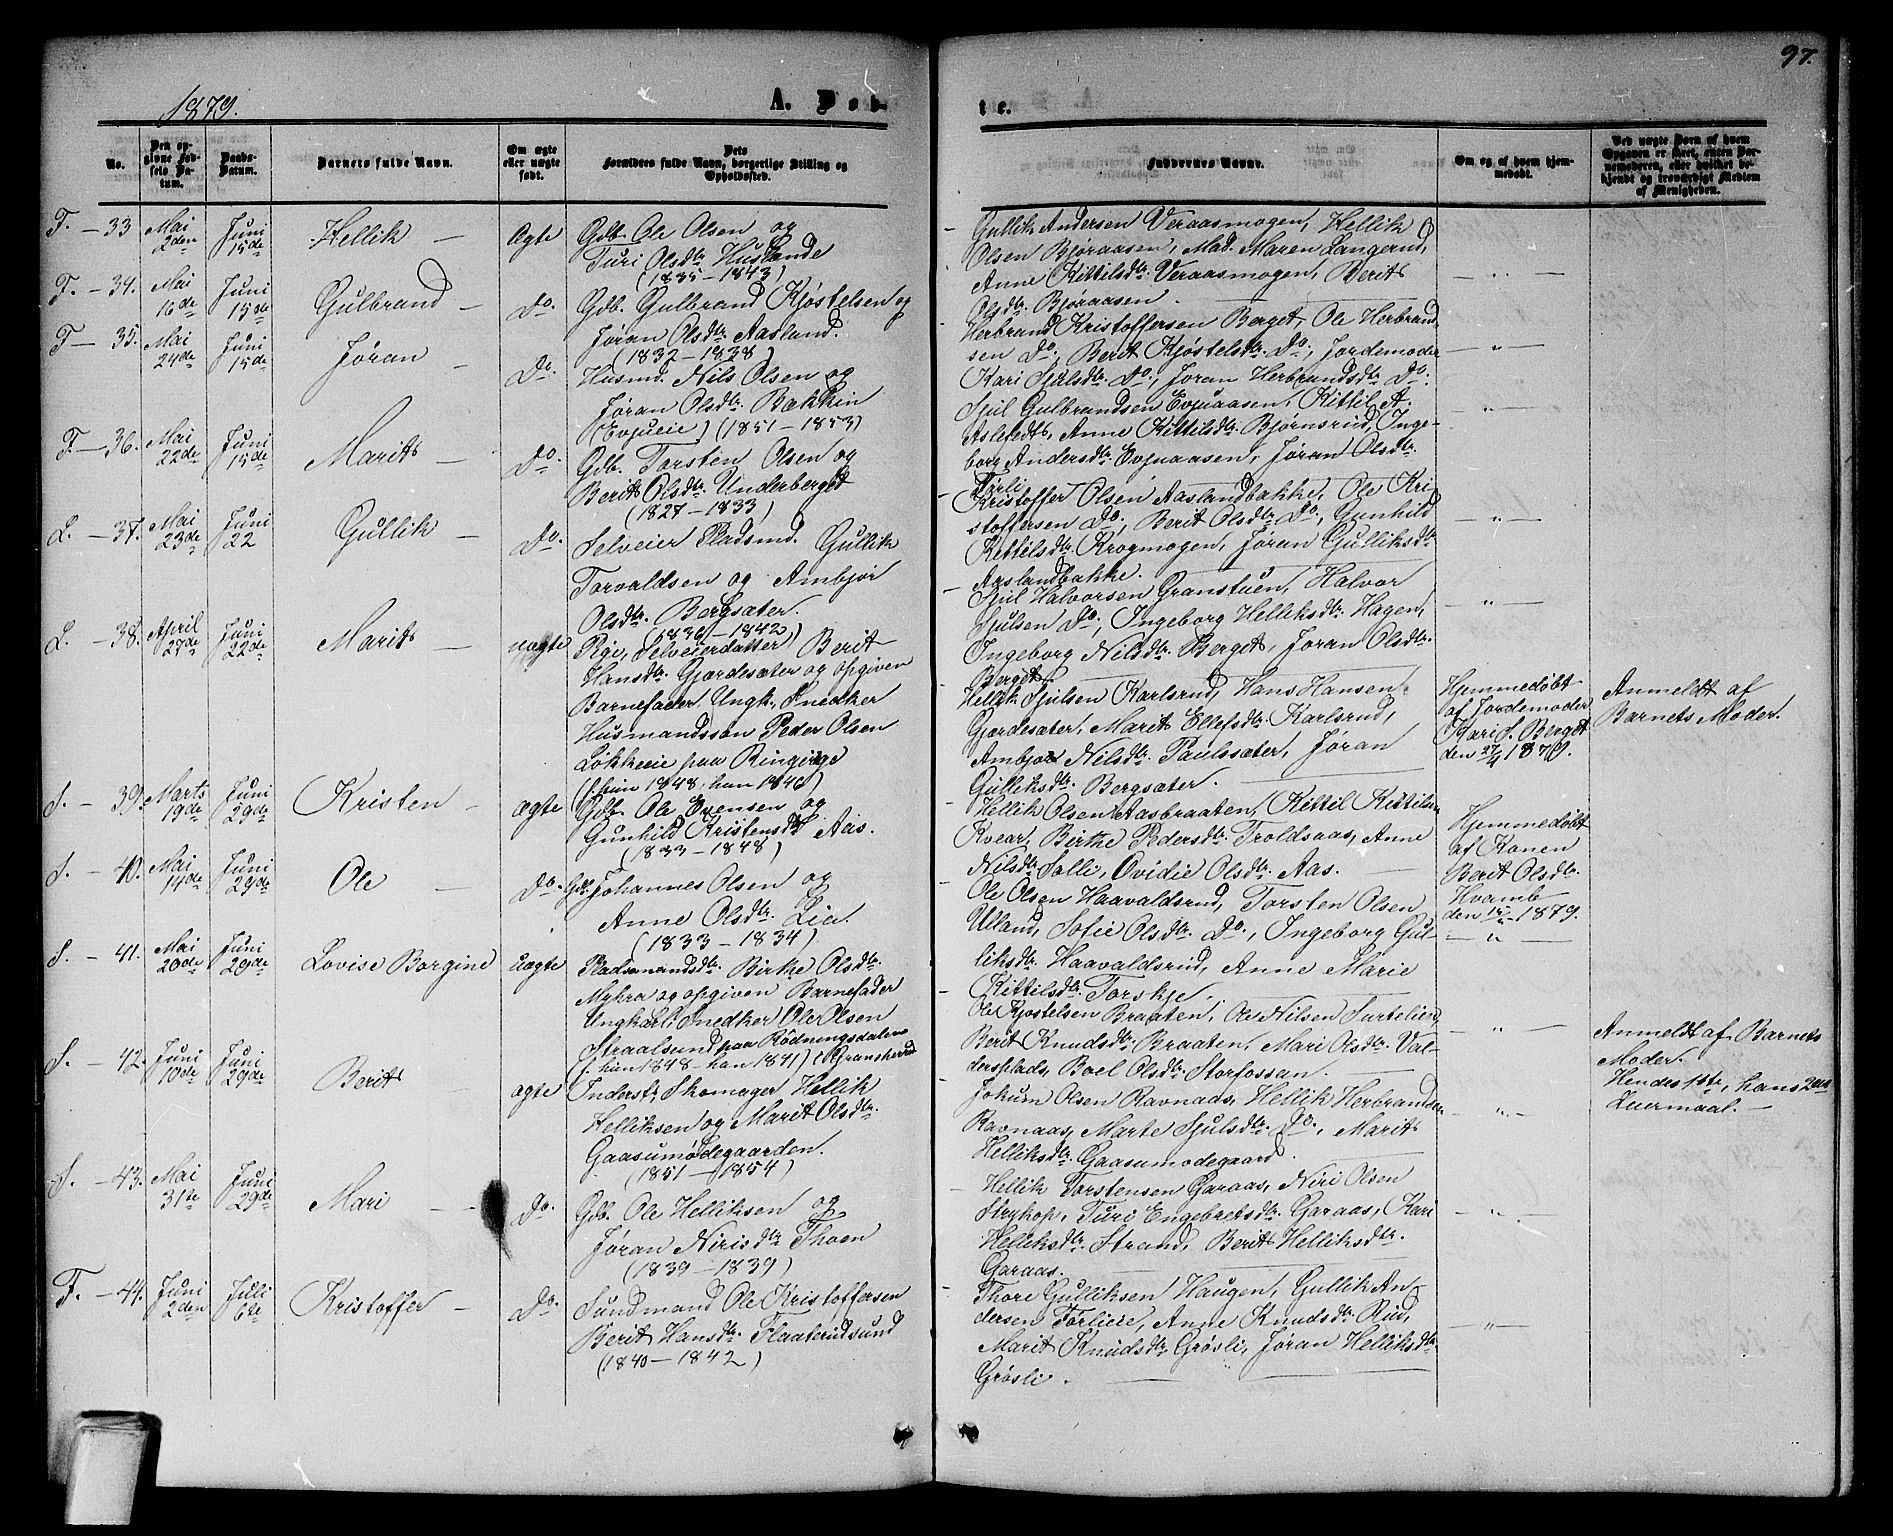 1879.
A. Døb-
te.
97.
No.
Den op-
givne Fød-
sels Da-
tum.
Daabs-
Datum.
Barnets fulde Navn.
Om ægte
eller uægte
født.
Dets
Forældres fulde Navn, borgerlige Stilling og
Opholdssted.
Faddernes Navne.
Om og af hvem hjem-
medøbt.
Ved uægte Børn af hvem
Opgaven er skeet, enten Bar-
nemoderen, eller hvilket be-
kjendt og troværdigt Medlem
af Menigheden.
F. - 33
Mai
2den
Juni
15de
Hellik
Ægte
Gdb. Ole Olsen og
Turi Olsdtr. Huslande
(1835-1843)
Gullik Andersen Veraasmogen, Hellik
Olsen Bjøraasen, Mad. Maren Langerud,
Anne Kittilsdtr. Veraasmogen, Berit
Olsdtr. Bjøraasen.
F. - 34.
Mai
16de
Juni
15de
Gulbrand
Do.
Gdb. Gulbrand Kjøstelsen og
Jøran Olsdtr. Aasland.
(1832-1838)
Herbrand Kristoffersen Berget, Ole Herbrand-
sen Do., Berit Kjøstelsdtr. Do., Jordemoder
Kari Sjulsdtr. Do., Jøran Herbrandsdtr. Do.
F - 35.
Mai
24de
Juni
15de
Jøran
Do.
Husmd. Nils Olsen og
Jøran Olsdtr. Bækkin
(Evjueie) (1851-1853)
Sjul Gulbrandsen Evjuaasen, Kittil A.
Asletedt, Anne Kittilsdtr. Bjørnsrud, Inge-
borg Andersdtr. Evjuaasen, Jøran Olsdtr.
Tørli
F. - 36.
Mai
22de
Juni
15de
Marit
Do.
Gdb. Torsten Olsen og
Berit Olsdtr. Underberget
(1827-1833)
Kristoffer Olsen Aaslandbakke, Ole Kri-
stoffersen Do., Berit Olsdtr. Do., Gunhild
Kittilsdtr. Krogmogen, Jøran Gulliksdtr.
Aaslandbakke.
L. - 37.
Mai
23de
Juni
22
Gullik
Do.
Selveier Pladsmd. Gullik
Torvaldsen og Ambjør
Olsdtr. Bergsæter.
(1836-1842)
Sjul Halvorsen Granstuen, Halvor
Sjulsen Do., Ingeborg Helliksdtr. Hagen,
Ingeborg Nilsdtr. Berget, Jøran Olsdtr.
Berget.
L. - 38.
April
27de
Juni
22de
Marit
uægte
Pige, Selveierdatter Berit
Hansdtr. Gjærdesæter og opgiven
Barnefader Ungk. Snedker
Husmandssøn Peder Olsen
Løkkeeie paa Ringerige
(f. hun 1848, han 1846)
Hellik Sjulsen Karlsrud, Hans Hansen
Gjærdesæter, Marit Ellefsdtr. Karlsrud,
Ambjør Nilsdtr. Paulssæter, Jøran
Gulliksdtr. Bergsæter.
Hjemmedøbt
af Jordemoder
Kari S. Berget
den 27/4 1879.
Anmeldt af
Barnets Moder.
S. - 39.
Marts
19de
Juni
29de
Kristen
ægte
Gdb. Ole Evensen og
Gunhild Kristensdtr Aas.
(1833-1848)
Hellik Olsen Aasbraaten, Kittil Kittilsen
Kvear, Birthe Pedersdtr. Troldsaas, Anne
Nilsdtr. Solli, Ovidie Olsdtr. Aas.
Hjemmedøbt
af Konen
Berit Olsdtr.
Hvamb
den 1879.
S. - 40.
Mai
14de
Juni
29de
Ole
Do.
Gdb. Johannes Olsen og
Anne Olsdtr. Lia.
(1833-1834)
Ole Olsen Haavaldsrud, Torsten Olsen
Ulland, Sofie Olsdtr. Do., Ingeborg Gul-
liksdtr. Haavaldsrud, Anne Marie
Kittilsdtr. Torskje.
S. - 41.
Mai
20de
Juni
29de
Lovise Borgine
uægte
Pladsmandsdtr. Birthe Olsdtr.
Myhra og opgiven Barnefader
Ungkarl, Snedker Ole Olsen
Straalsund paa Rødningsdalene
f. hun 1848 - han 1841) i Gransherred
Ole Kjøstelsen Braaten, Ole Nilsen Surtelier,
Berit Knudsdtr. Braaten, Mari Olsdtr. Val-
dersplads, Boel Olsdtr. Storfossan.
Anmeldt af Barnets
Moder.
Hendes 1ste, hans 2det
Leiermaal.
S. - 42.
Juni
10de
Juni
29de
Berit
ægte
Inderst. Skomager Hellik
Helliksen og Marit Olsdtr.
Gaasumødegaarden.
(1851-1854)
Jokum Olsen Ravnaas, Hellik Herbrandsen
Ravnaas, Marte Sjulsdtr. Do., Marit
Helliksdtr. Gaasumodegaard.
S. - 43.
Mai
31te
Juni
29de
Mari
Do.
Gdb. Ole Helliksen og
Jøran Nirisdtr Thoen
(1839-1839)
Hellik Torstensen Garaas, Niri Olsen
Strykop, Turi Engebretsdtr. Garaas, Kari
Helliksdtr. Strand, Berit Helliksdtr.
Garaas.
F. - 44.
Juni
2den
Juli
6te
Kristoffer
Do.
Sundmand Ole Kristoffersen
Berit Hansdtr. Flaaterudsund
(1840-1842)
Thore Gulliksen Haugen, Gullik An-
dersen Tørliere, Anne Knudsdtr Rud,
Marit Knudsdtr Grøsli, Jøran Helliksdtr
Grøsli.